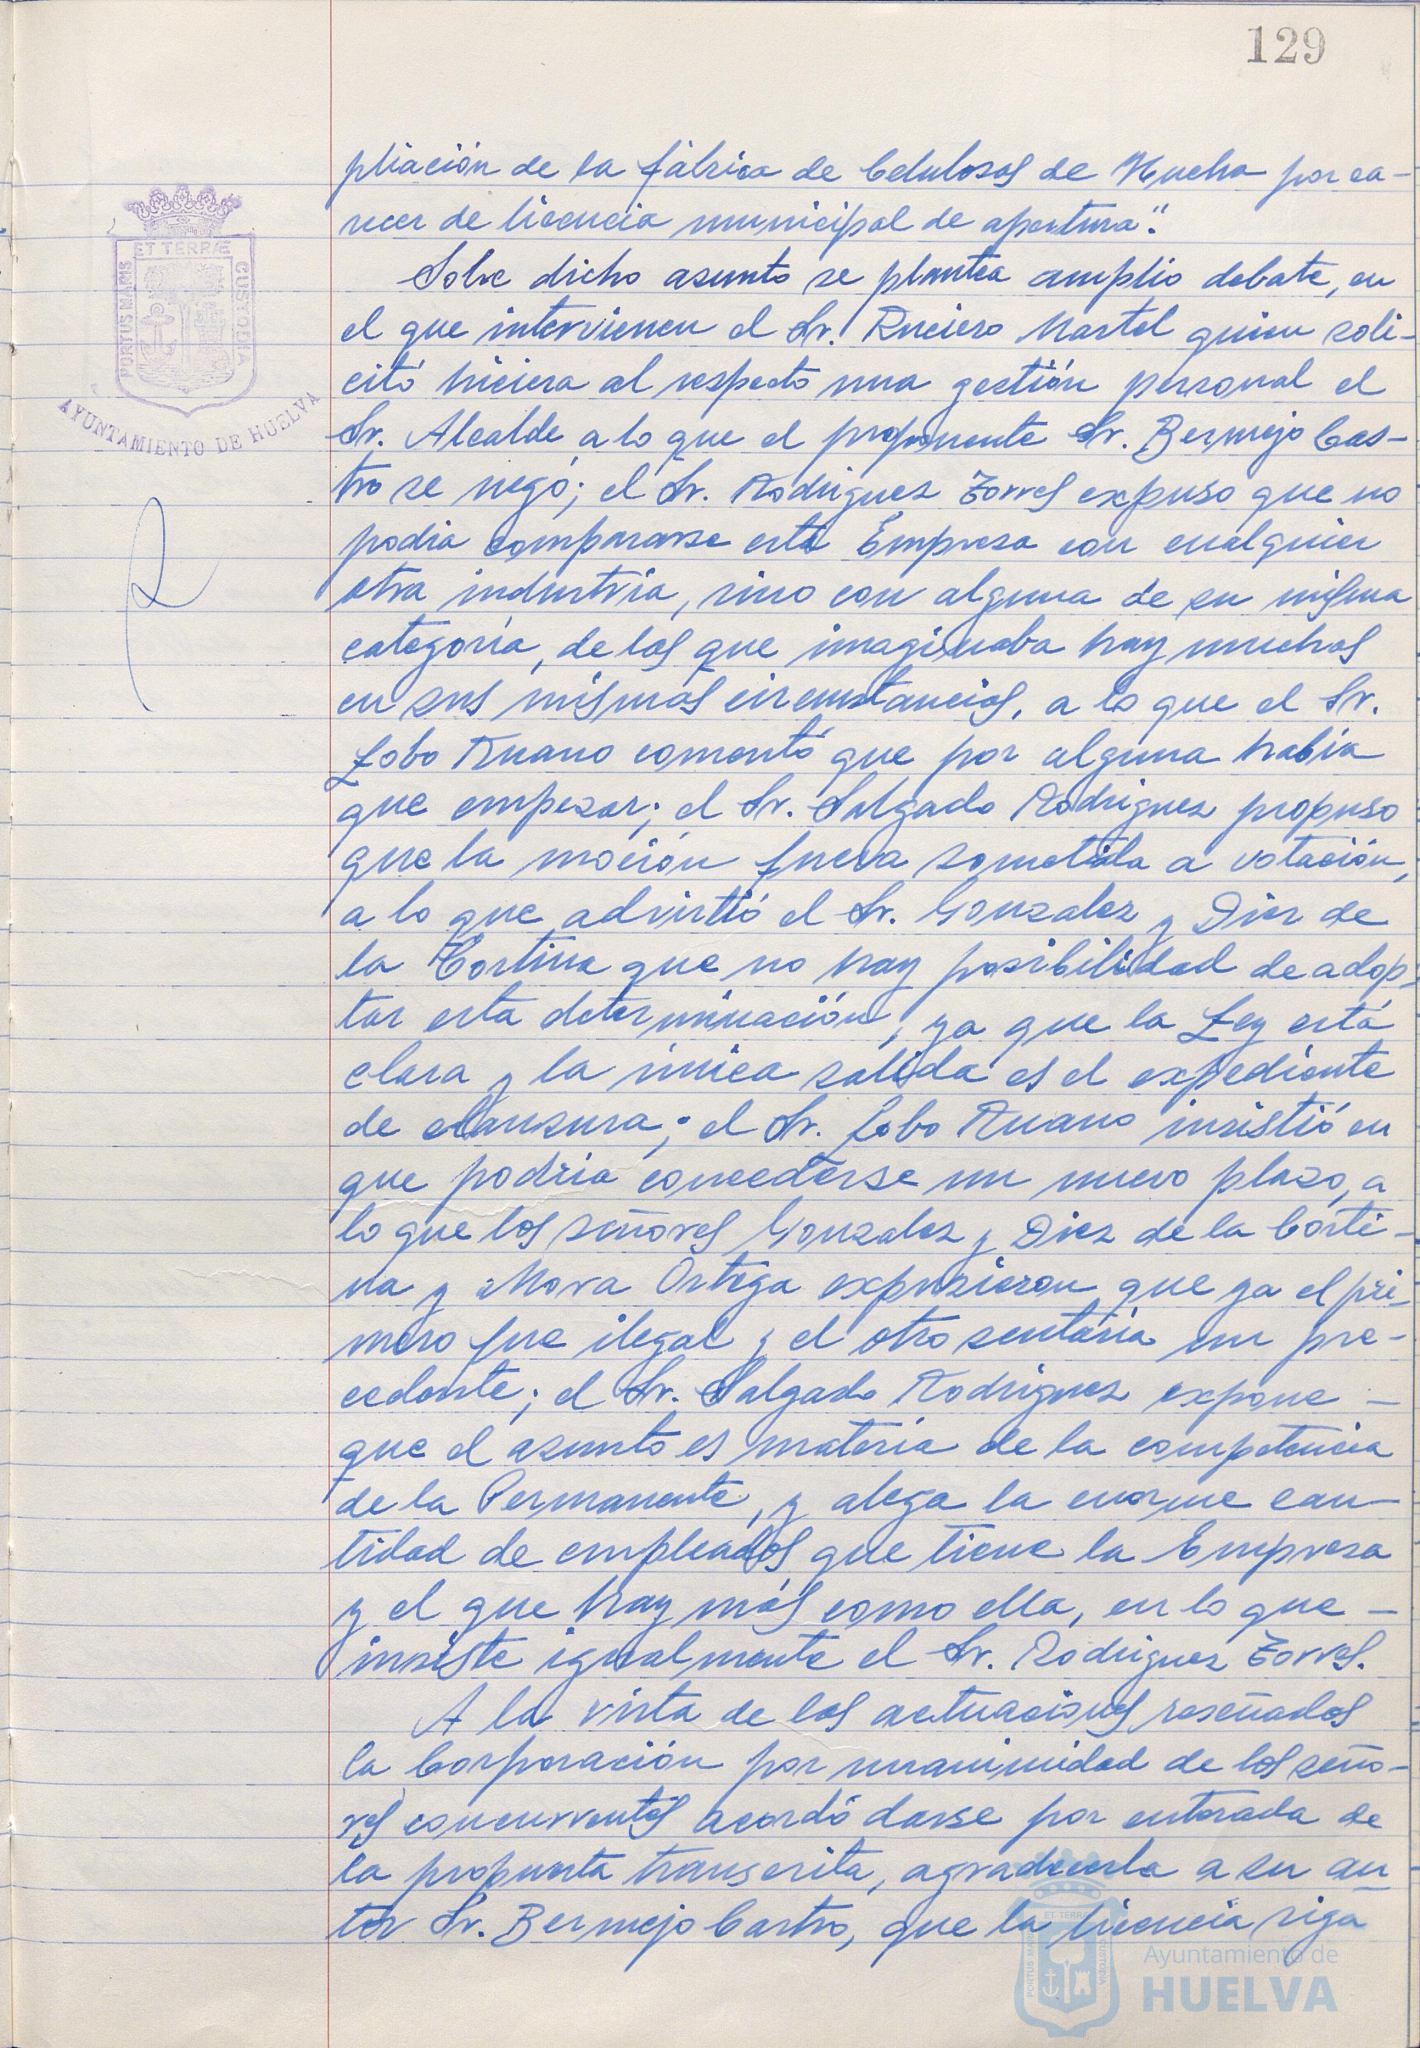 129
pliación de la fábrica de Celulosas de Huelva por ca-
recer de licencia municipal de apertura".
Sobre dicho asunto se plantea amplio debate, en
el que intervienen el Sr. Ruciero Martel quien soli-
citó hiciera al respecto una gestión personal el
Sr. Alcalde, a lo que el proponente Sr. Bermejo Cas-
tro se negó; el Sr. Rodriguez Torres expuso que no
podia compararse esta Empresa con cualquier
otra industria, sino con alguna de su misma
categoria, de las que imaginaba hay muchas
en sus mismas circunstancias, a lo que el Sr.
Lobo Ruano comentó que por alguna habia
que empezar; el Sr. Salgado Rodriguez propuso
que la moción fuera sometida a votación,
a lo que advirtió el Sr. Gonzalez y Diez de
la Cortina que no hay posibilidad de adop-
tar esta determinación, ya que la Ley está
clara y la única salida es el expediente
de clausura; el Sr. Lobo Ruano insistió en
que podria concederse un nuevo plazo, a
lo que los señores Gonzalez y Diez de la Corti-
na y Mora Ortega expusieron que ya el pri-
mero fue ilegal y el otro sentaria un pre-
cedente; el Sr. Salgado Rodriguez expone -
que el asunto es materia de la competencia
de la Permanente, y alega la enorme can-
tidad de empleados que tiene la Empresa
y el que hay más como ella, en lo que -
insiste igualmente el Sr. Rodriguez Torres.
A la vista de las actuaciones reseñadas
la Corporación por unanimidad de los seño-
res concurrentes acordó darse por enterada de
la propuesta transcrita, agradecerla a su au-
tor Sr. Bermejo Castro, que la licencia siga
PORTUS MARIS
ET TERRÆ
CUSTODIA
AYUNTAMIENTO DE HUELVA
PORTUS MARIS
ET TERRÆ
CUSTODIA
Ayuntamiento de
HUELVA